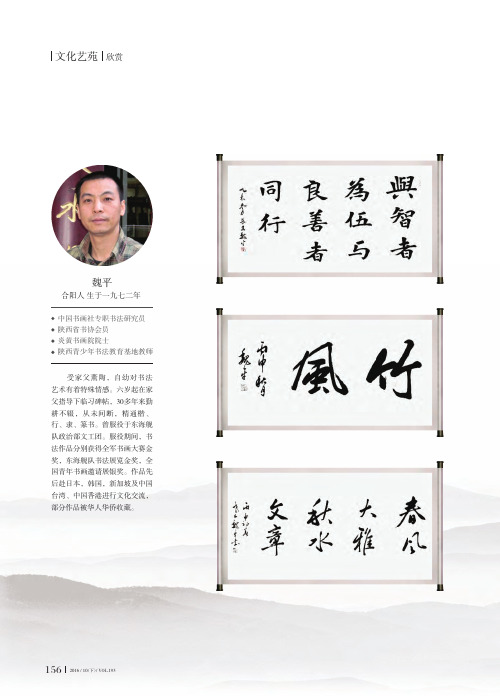 文化艺苑 欣赏
魏平
合阳人 生于一九七二年
中国书画社专职书法研究员
陕西省书协会员
炎黄书画院院士
陕西青少年书法教育基地教师
受家父熏陶，自幼对书法
艺术有着特殊情感。六岁起在家
父指导下临习碑帖，30多年来勤
耕不辍，从未间断，精通楷、
行、隶、篆书。曾服役于东海舰
队政治部文工团。服役期间，书
法作品分别获得全军书画大赛金
奖，东海舰队书法展览金奖，全
国青年书画邀请展银奖。作品先
后赴日本，韩国，新加坡及中国
台湾、中国香港进行文化交流，
部分作品被华人华侨收藏。
與智者
為伍与
良善者
同行
竹風
丙申秋月
魏平
春风
大雅
秋水
文章
156